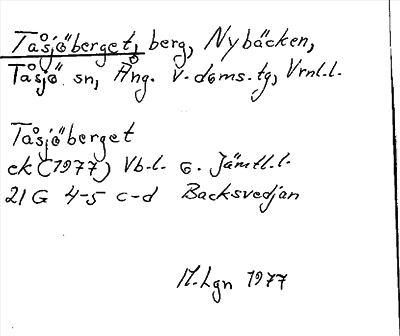 Tåsjöberget, berg, Nybäcken,
Tåsjö sn, Ång. v. doms.tg, Vrnl.l.
Tåsjöberget
ek (1977) Vb.l. o. Jämtl.l.
21 G 4-5 c-d Backsvedjan
M.Lgn 1977